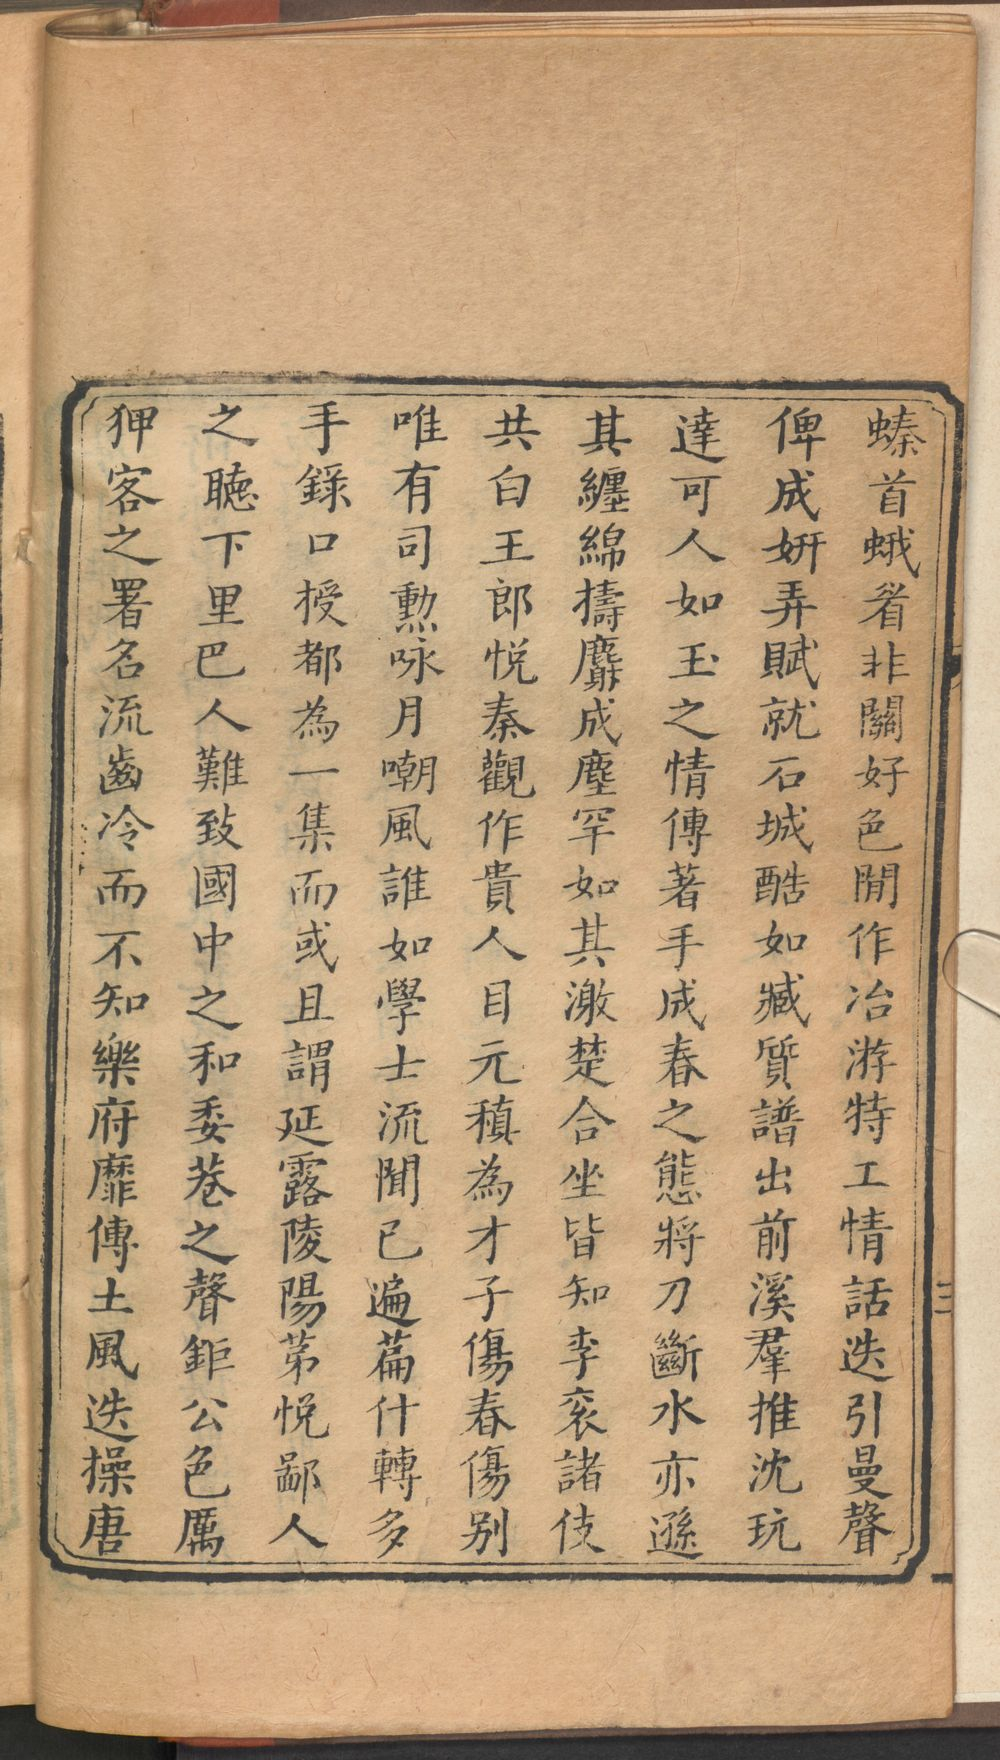 螓首蛾眉非關好色閒作冶游特工情話迭引曼聲
俾成妍弄賦就石城酷如臧質譜出前溪羣推沈玩
達可人如玉之情傳著手成春之態將刀斷水亦遜
其纏綿擣麝成塵罕如其激楚合坐皆知李衮諸伎
共白王郎悅秦觀作貴人目元稹為才子傷春傷别
唯有司勲咏月嘲風誰如學士流聞已遍篇什轉多
手錄口授都為一集而或且謂延露陵陽苐悅鄙人
之聽下里巴人難致國中之和委巷之聲鉅公色厲
狎客之署名流齒冷而不知樂府靡傳土風迭操唐